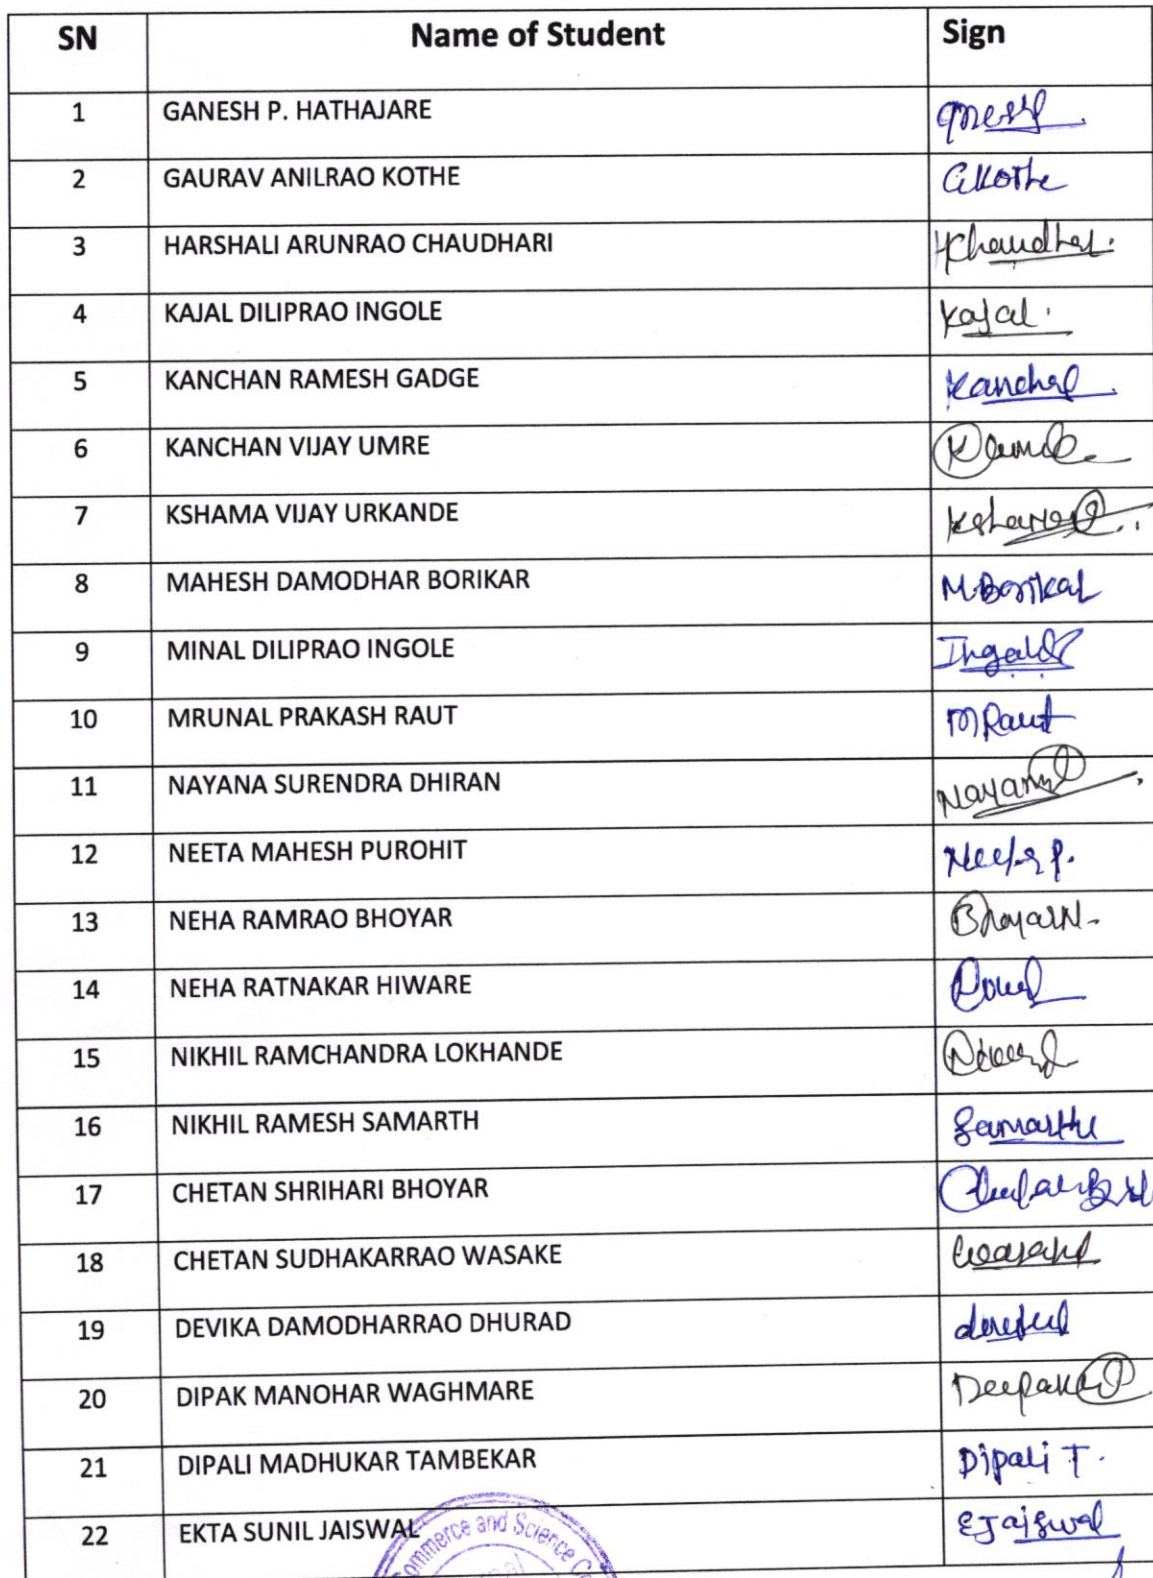 SN Name of Student Sign
1 GANESH P. HATHAJARE
2 GAURAV ANILRAO KOTHE GKothe
3 HARSHALI ARUNRAO CHAUDHARI
4 KAJAL DILIPRAO INGOLE Kajal.
5 KANCHAN RAMESH GADGE
6 KANCHAN VIJAY UMRE
7 KSHAMA VIJAY URKANDE
8 MAHESH DAMODHAR BORIKAR M.Borikar
9 MINAL DILIPRAO INGOLE
10 MRUNAL PRAKASH RAUT MRaut
11 NAYANA SURENDRA DHIRAN
12 NEETA MAHESH PUROHIT
13 NEHA RAMRAO BHOYAR BhoyarN.
14 NEHA RATNAKAR HIWARE
15 NIKHIL RAMCHANDRA LOKHANDE
16 NIKHIL RAMESH SAMARTH
17 CHETAN SHRIHARI BHOYAR
18 CHETAN SUDHAKARRAO WASAKE
19 DEVIKA DAMODHARRAO DHURAD
20 DIPAK MANOHAR WAGHMARE
21 DIPALI MADHUKAR TAMBEKAR Dipali T.
22 EKTA SUNIL JAISWAL EJaiswal
Commerce and Science